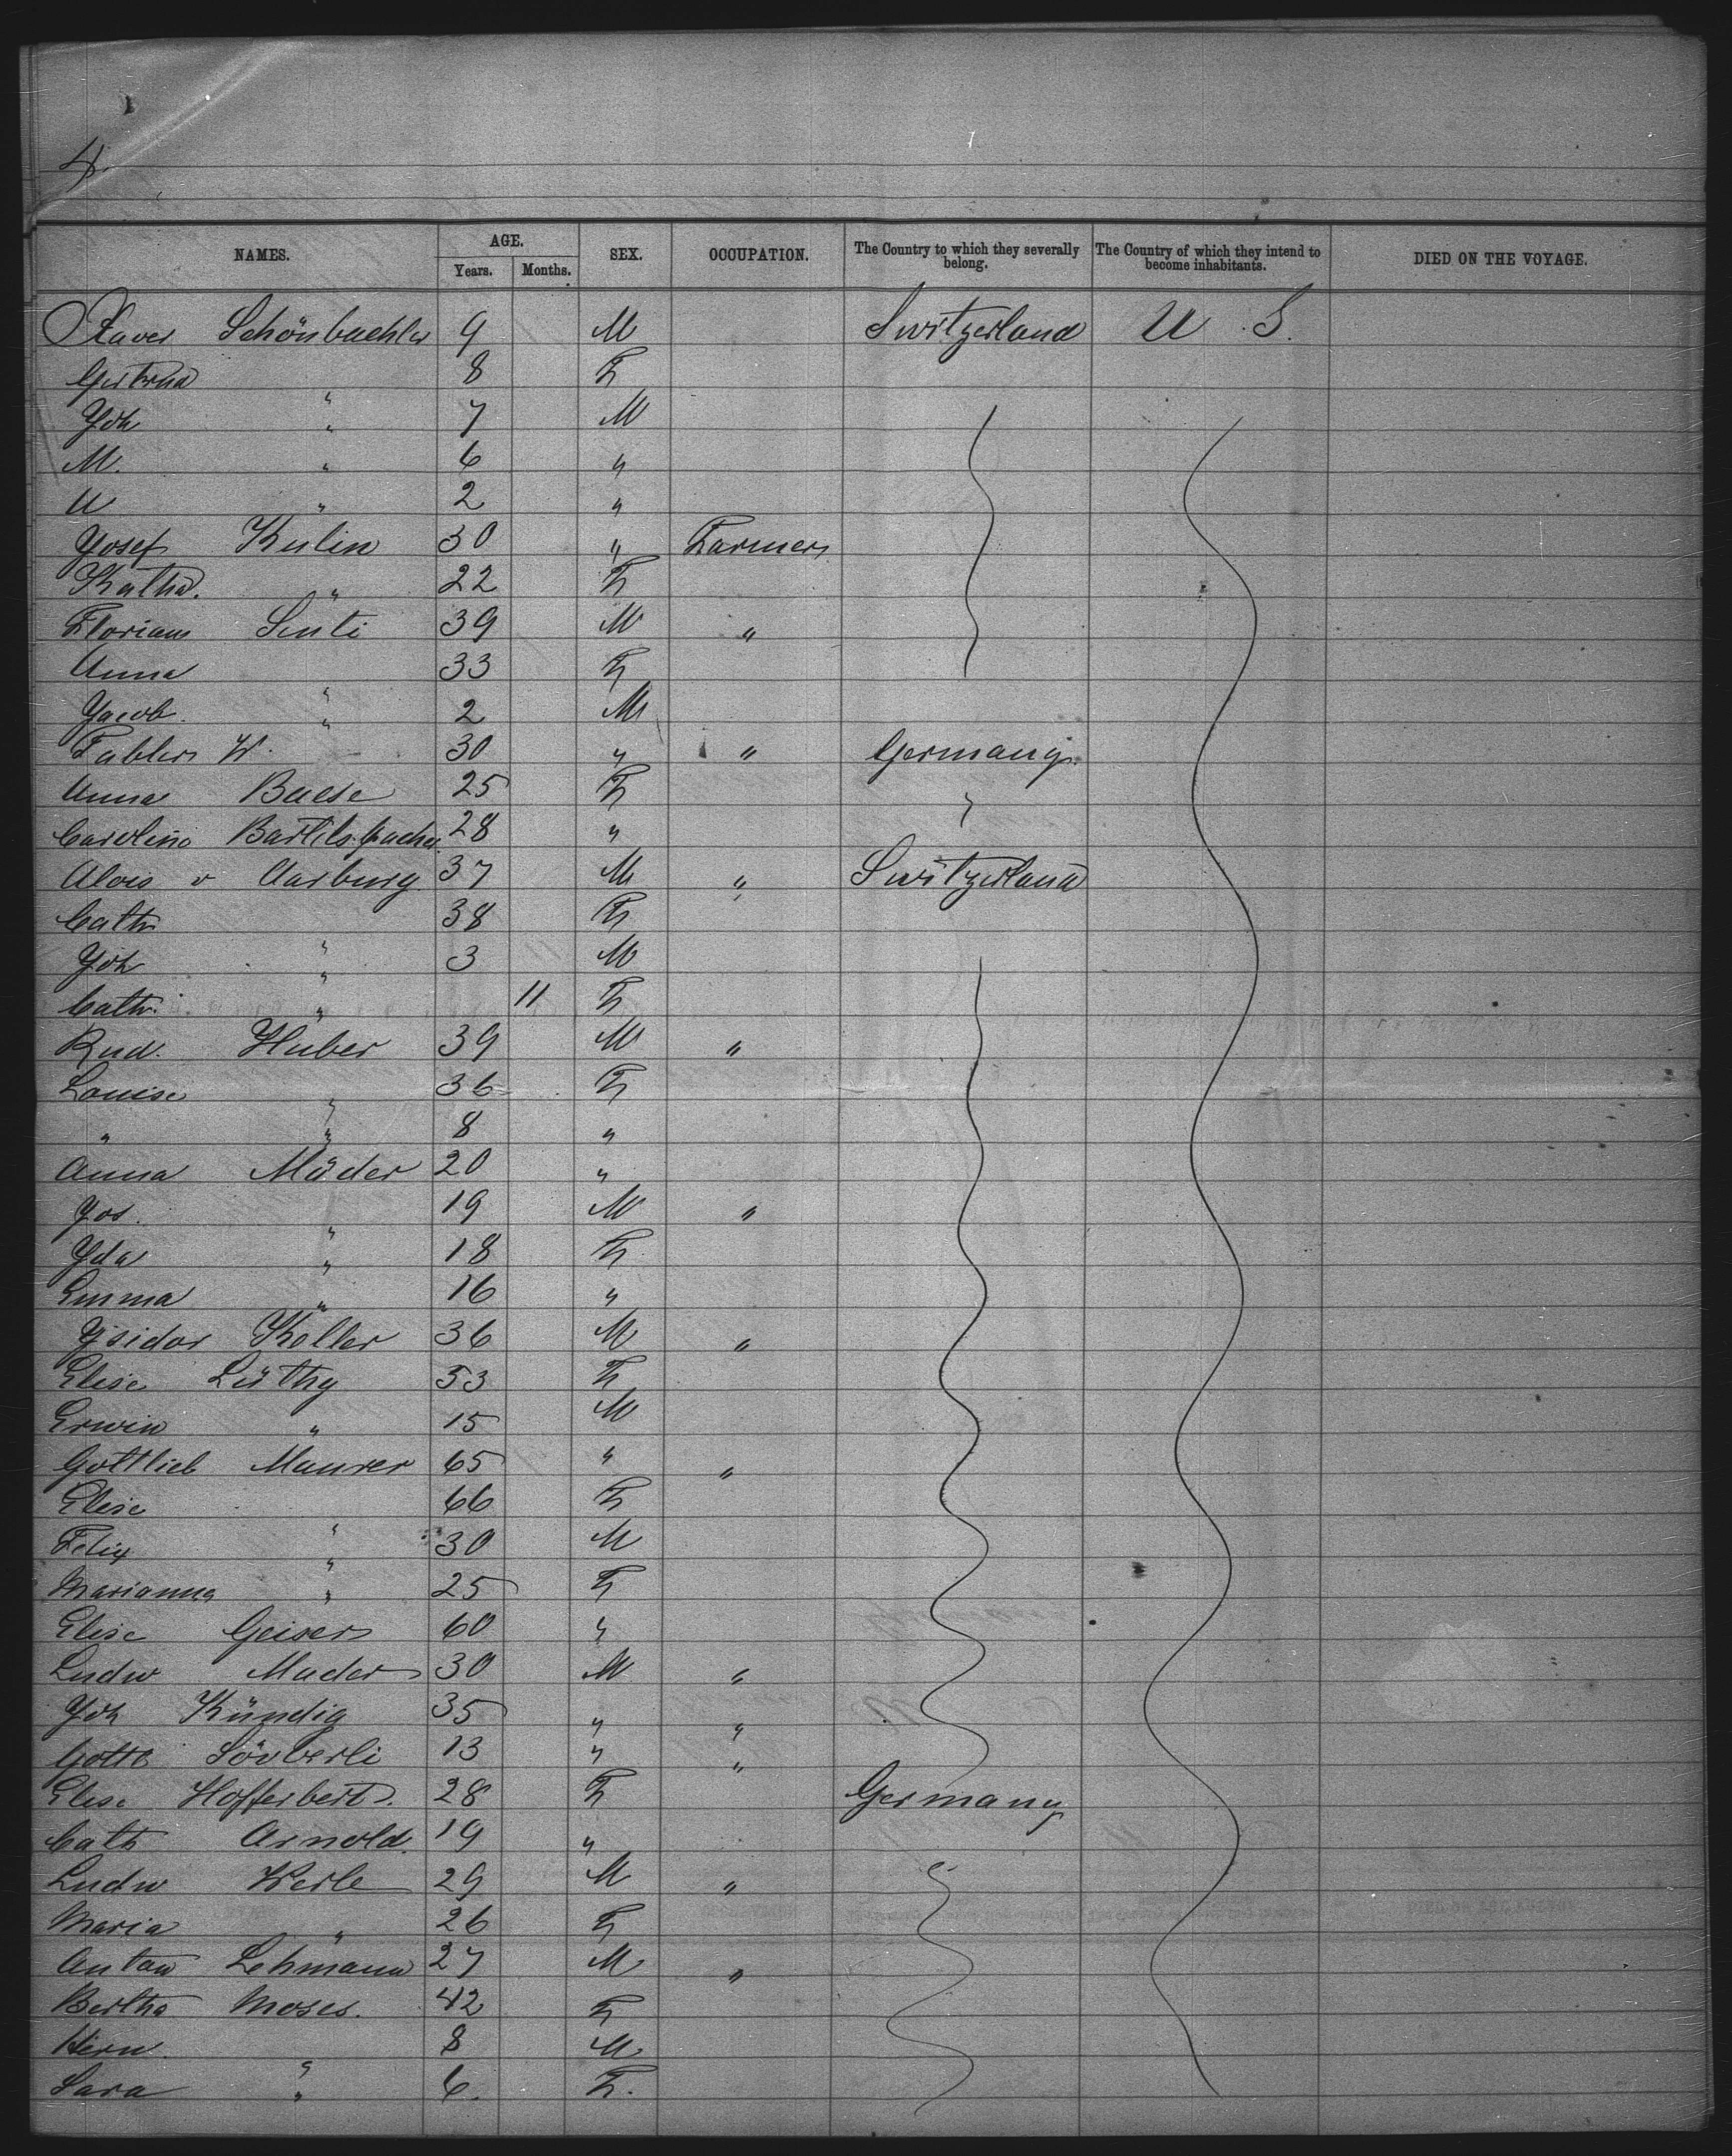 4.
NAMES. AGE. SEX. OCCUPATION. The Country to which they severally belong. The Country of which they intend to become inhabitants. DIED ON THE VOYAGE.
Years. Months.
Xaver Schönbuehler 9 M Switzerland U. S.
8 F
Joh " 7 M
M. " 6 "
" 2 "
Josef Kulin 30 " Farmer
Katha. " 22 F
Florian Senti 39 M "
Anna " 33 F
Jacob " 2 M
W. 30 " " Germany
Anna Baese 25 F
Caroline 28 "
Alois v Aarburg 37 M " Switzerland
Cath " 38 F
Joh " 3 M
Cath. " 11 F
Rud. Huber 39 M "
Louise " 36 F
" " 8 "
Anna Mäder 20 "
Jos. " 19 M "
Ida " 18 F
Emma " 16 "
Isidor Koller 36 M "
Elise Lüthy 53 F
Erwin " 15 M
Gottlieb Maurer 65 " "
Elise " 66 F
Felix " 30 M
Marianna " 25 F
Elise Geiser 60 "
Ludw Mader 30 M "
Joh Kündig 35 " "
Gottl 13 " "
Elise Hofferbert. 28 F Germany
Cath Arnold. 19 "
Ludw Werle 29 M "
Maria " 26 F
Anton Lehmann 27 M "
Bertha Moses. 42 F
Herm " 8 M
Sara " 6. F.